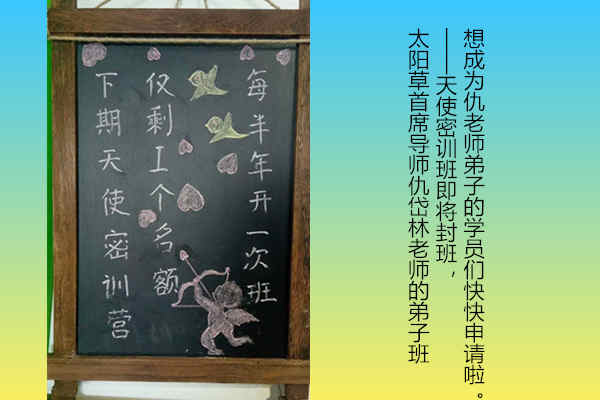 下期天使密训营
仅剩1个名额
每半年开一次班
太阳草首席导师仇岱林老师的弟子班
——天使密训班即将封班，
想成为仇老师弟子的学员们快快申请啦。